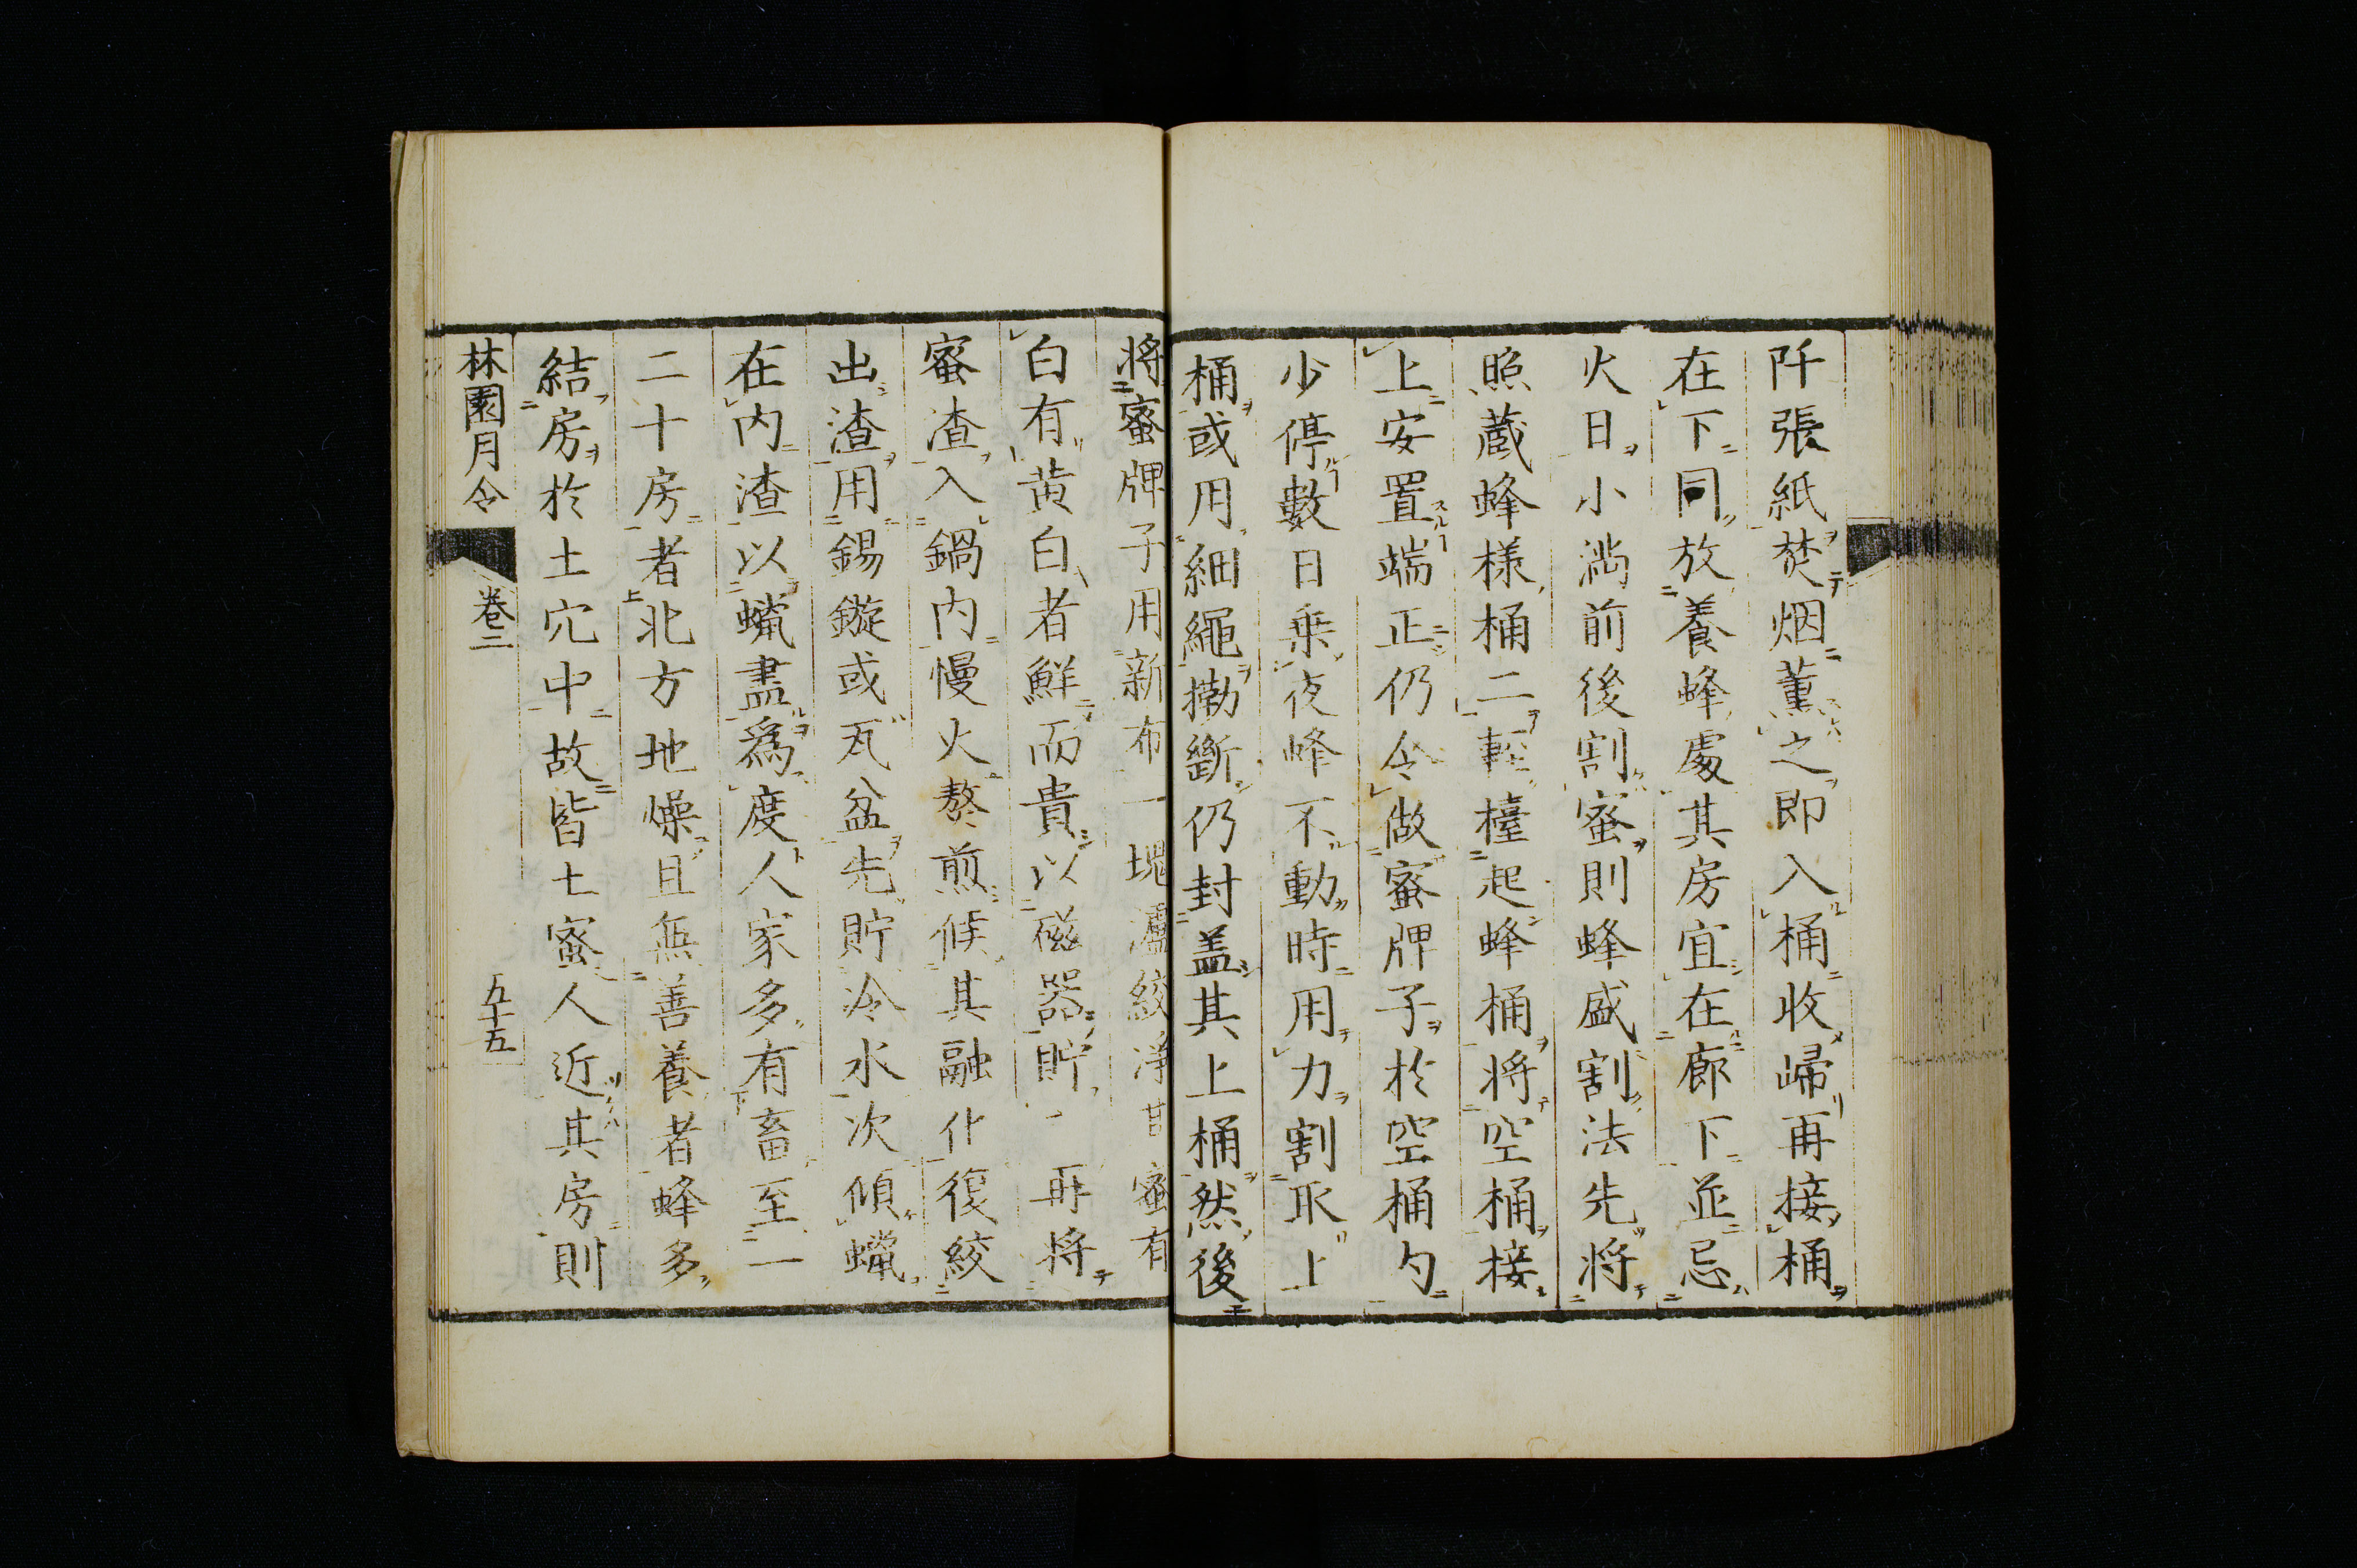 阡張紙焚烟薫之即入桶收歸再接桶
在下同放養蜂處其房宜在廊下並忌
火日小滿前後割蜜則蜂盛割法先將
照藏蜂様桶二輕擡起蜂桶將空桶接
上安置端正仍令做蜜牌子於空桶勺
少停數日乗夜蜂不動時用力割取上
桶或用細繩撇斷仍封盖其上桶然後
將蜜牌子用新布一塊濾絞淨其蜜有
白有黄白者鮮而貴以磁器貯 再將
蜜渣入鍋内慢火熬煎候其融化復絞
出渣用錫鏇或瓦盆先貯冷水次傾蠟
在内渣以蠟盡爲度人家多有畜至一
二十房者北方地燥且無善養者蜂多
結房於土穴中故皆土蜜人近其房則
林園月令 卷二 五十五